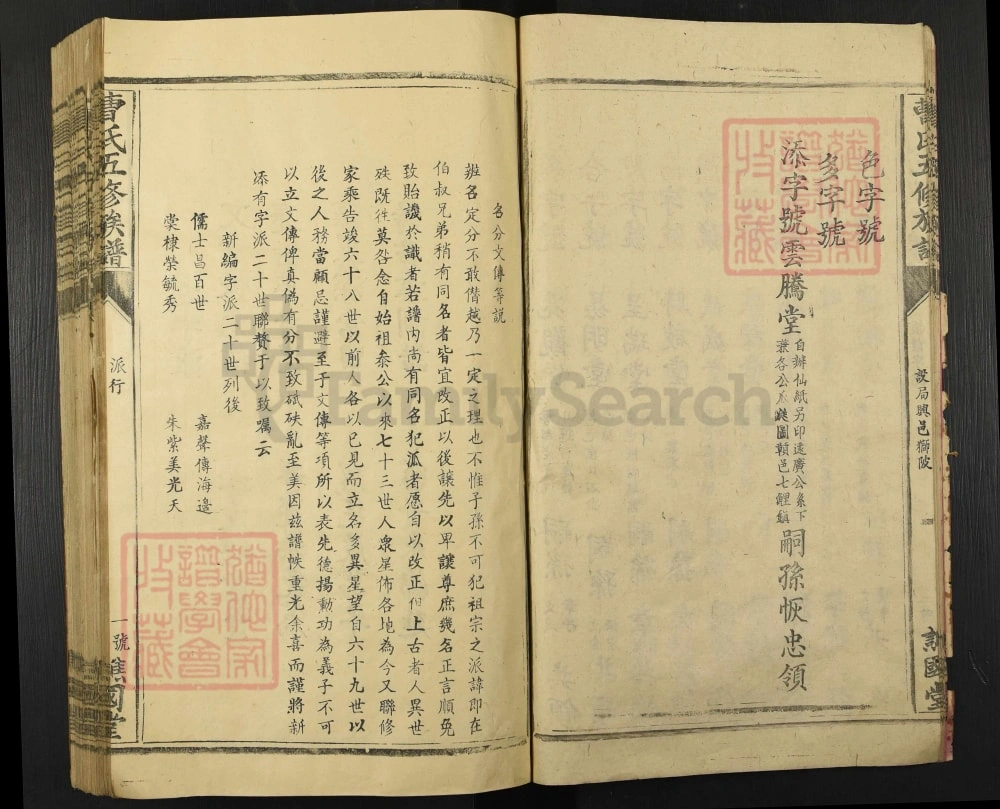 色字號
多字號
添字號雲騰堂
自辦仙紙另印遠廣公系下
葉各公爪
圖贛邑七鯉鎮
嗣孫恢忠領
設局興邑獅陂
國堂
名分文傳等説
辨名定分不敢僭越乃一定之理也不惟子孫不可犯祖宗之派諱即在
伯叔兄弟稍有同名者皆宜改正以後讓先以卑讓尊庶幾名正言順免
致貽譏於識者若譜内尚有同名犯派者愿自以改正但上古者人異世
殊既往莫咎念自始祖叅公以來七十三世人衆星佈各地為今又聯修
家乘告竣六十八世以前人各以已見而立名多異星望自六十九世以
後之人務當顧忌謹避至于文傳等項所以表先德揚勲功為義子不可
以立文傳俾真偽有分不致碔砆亂至美因兹譜帙重光余喜而謹將新
添有字派二十世聯賛于以致嘱云
新編字派二十世列後
儒士昌百世
嘉聲傳海邊
棠棣榮毓秀
朱紫美光天
曹氏五修族譜
派行
一號
國堂
FamilySearch